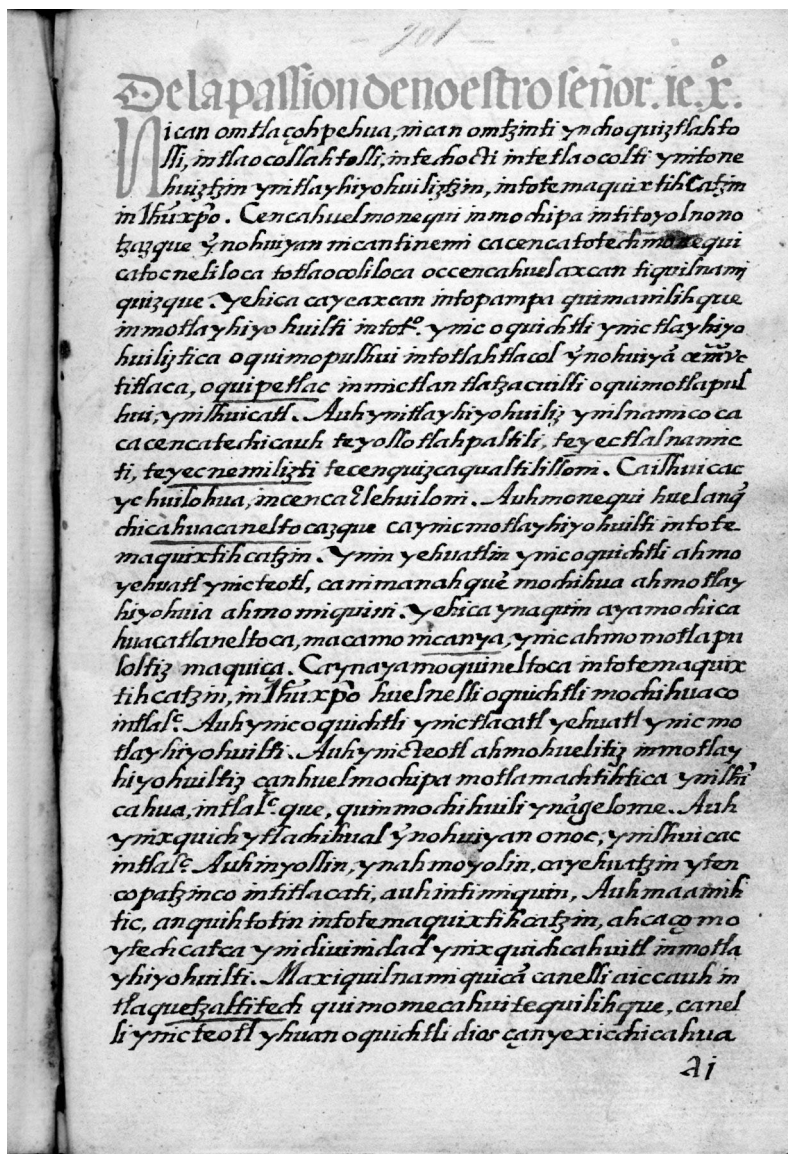 201
De la passion de noestro señor. ie. xº.
Nican omtlaçohpehua, nican omtzinti yn choquiztlahto
lli, in tlaocollahtolli, in techocti in tetlaocolti yn itone
huiztzin yn itlayhiyohuiliztzin, in totemaquixtihcatzin
in Ihũ xp̃o. Cenca huel monequi in mochipa intitoyolnono
tzazque ỹnohuiyan nican tinemi ca cenca totech monequi
ca tocneliloca totlaocoliloca occenca huel axcan tiquilnami
quizque. yehica ca ye axcan in topampa quimanilihque
inmotlayhiyohuilti in totº. ynic oquichtli ynic tlayhiyo
huiliztica oquimopulhui in totlahtlacol ỹnohuiyã
titlaca, oquipetlac in mictlan tlatzacuilli oquimotlapul
hui, yn ilhuicatl. Auh yn itlayhiyohuiliz yn ilnamicoca
ca cenca techicauh teyollotlahpaltili, teyectlalnamic
ti, teyecnemilizti tecenquizcaqualtililloni. Ca ilhuicac
yc huilohua, in cenca elehuiloni. Auh monequi huel anq̃
chicahuacaneltocazque ca ynic motlayhiyohuilti in tote
maquixtihcatzin. ynin yehuatlin ynic oquichtli ahmo
yehuatl ynic teotl, ca niman ahquẽ mochihua ahmo tlay
hiyohuia ahmo miquini. yehica yn aquin ayamo chica
huacatlaneltoca, macamo nican ya, ynic ahmo motlapu
loltiz maquiça. Ca yn ayamo quineltoca in totemaquix
tihcatzin, in Ihũ xp̃o huel nelli oquichtli mochihuaco
in tlalᶜ. Auh ynic oquichtli ynic tlacatl yehuatl ynic mo
tlayhiyohuilti. Auh ynic teotl ahmo huelitiz inmotlay
hiyohuiltiz çan huel mochipa motlamachtihtica yn ilhui
cahua, in tlalᶜ. que, quimmochihuili yn ãgelome. Auh
yn ixquich ytlachihual ỹnohuiyan onoc, yn ilhuicac
in tlalᶜ. Auh in yollin, yn ahmo yolin, ca yehuatzin yten
copatzinco in titlacati, auh in timiquin, Auh ma amih
tic, anquihtotin in totemaquixtihcatzin, ahcaço mo
ytech catca yn idiuinidad yn ixquichcahuitl inmotla
yhiyohuilti. Maxiquilnamiquicã ca nelli aic cauh in
tlaquetzaltitech quimomecahuitequilihque, ca nel
li ynic teotl yhuan oquichtli dios çan ye xicchicahua
Aj